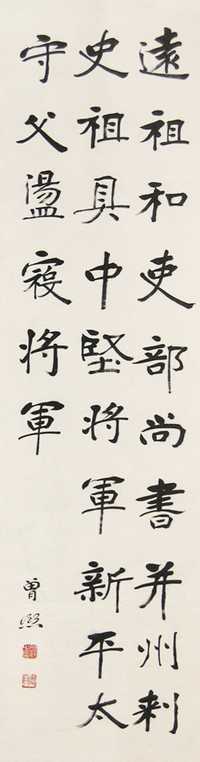 遠祖和吏部尚書并州刺
史祖具中堅將軍新平太
守父盪寇將軍
曾熙